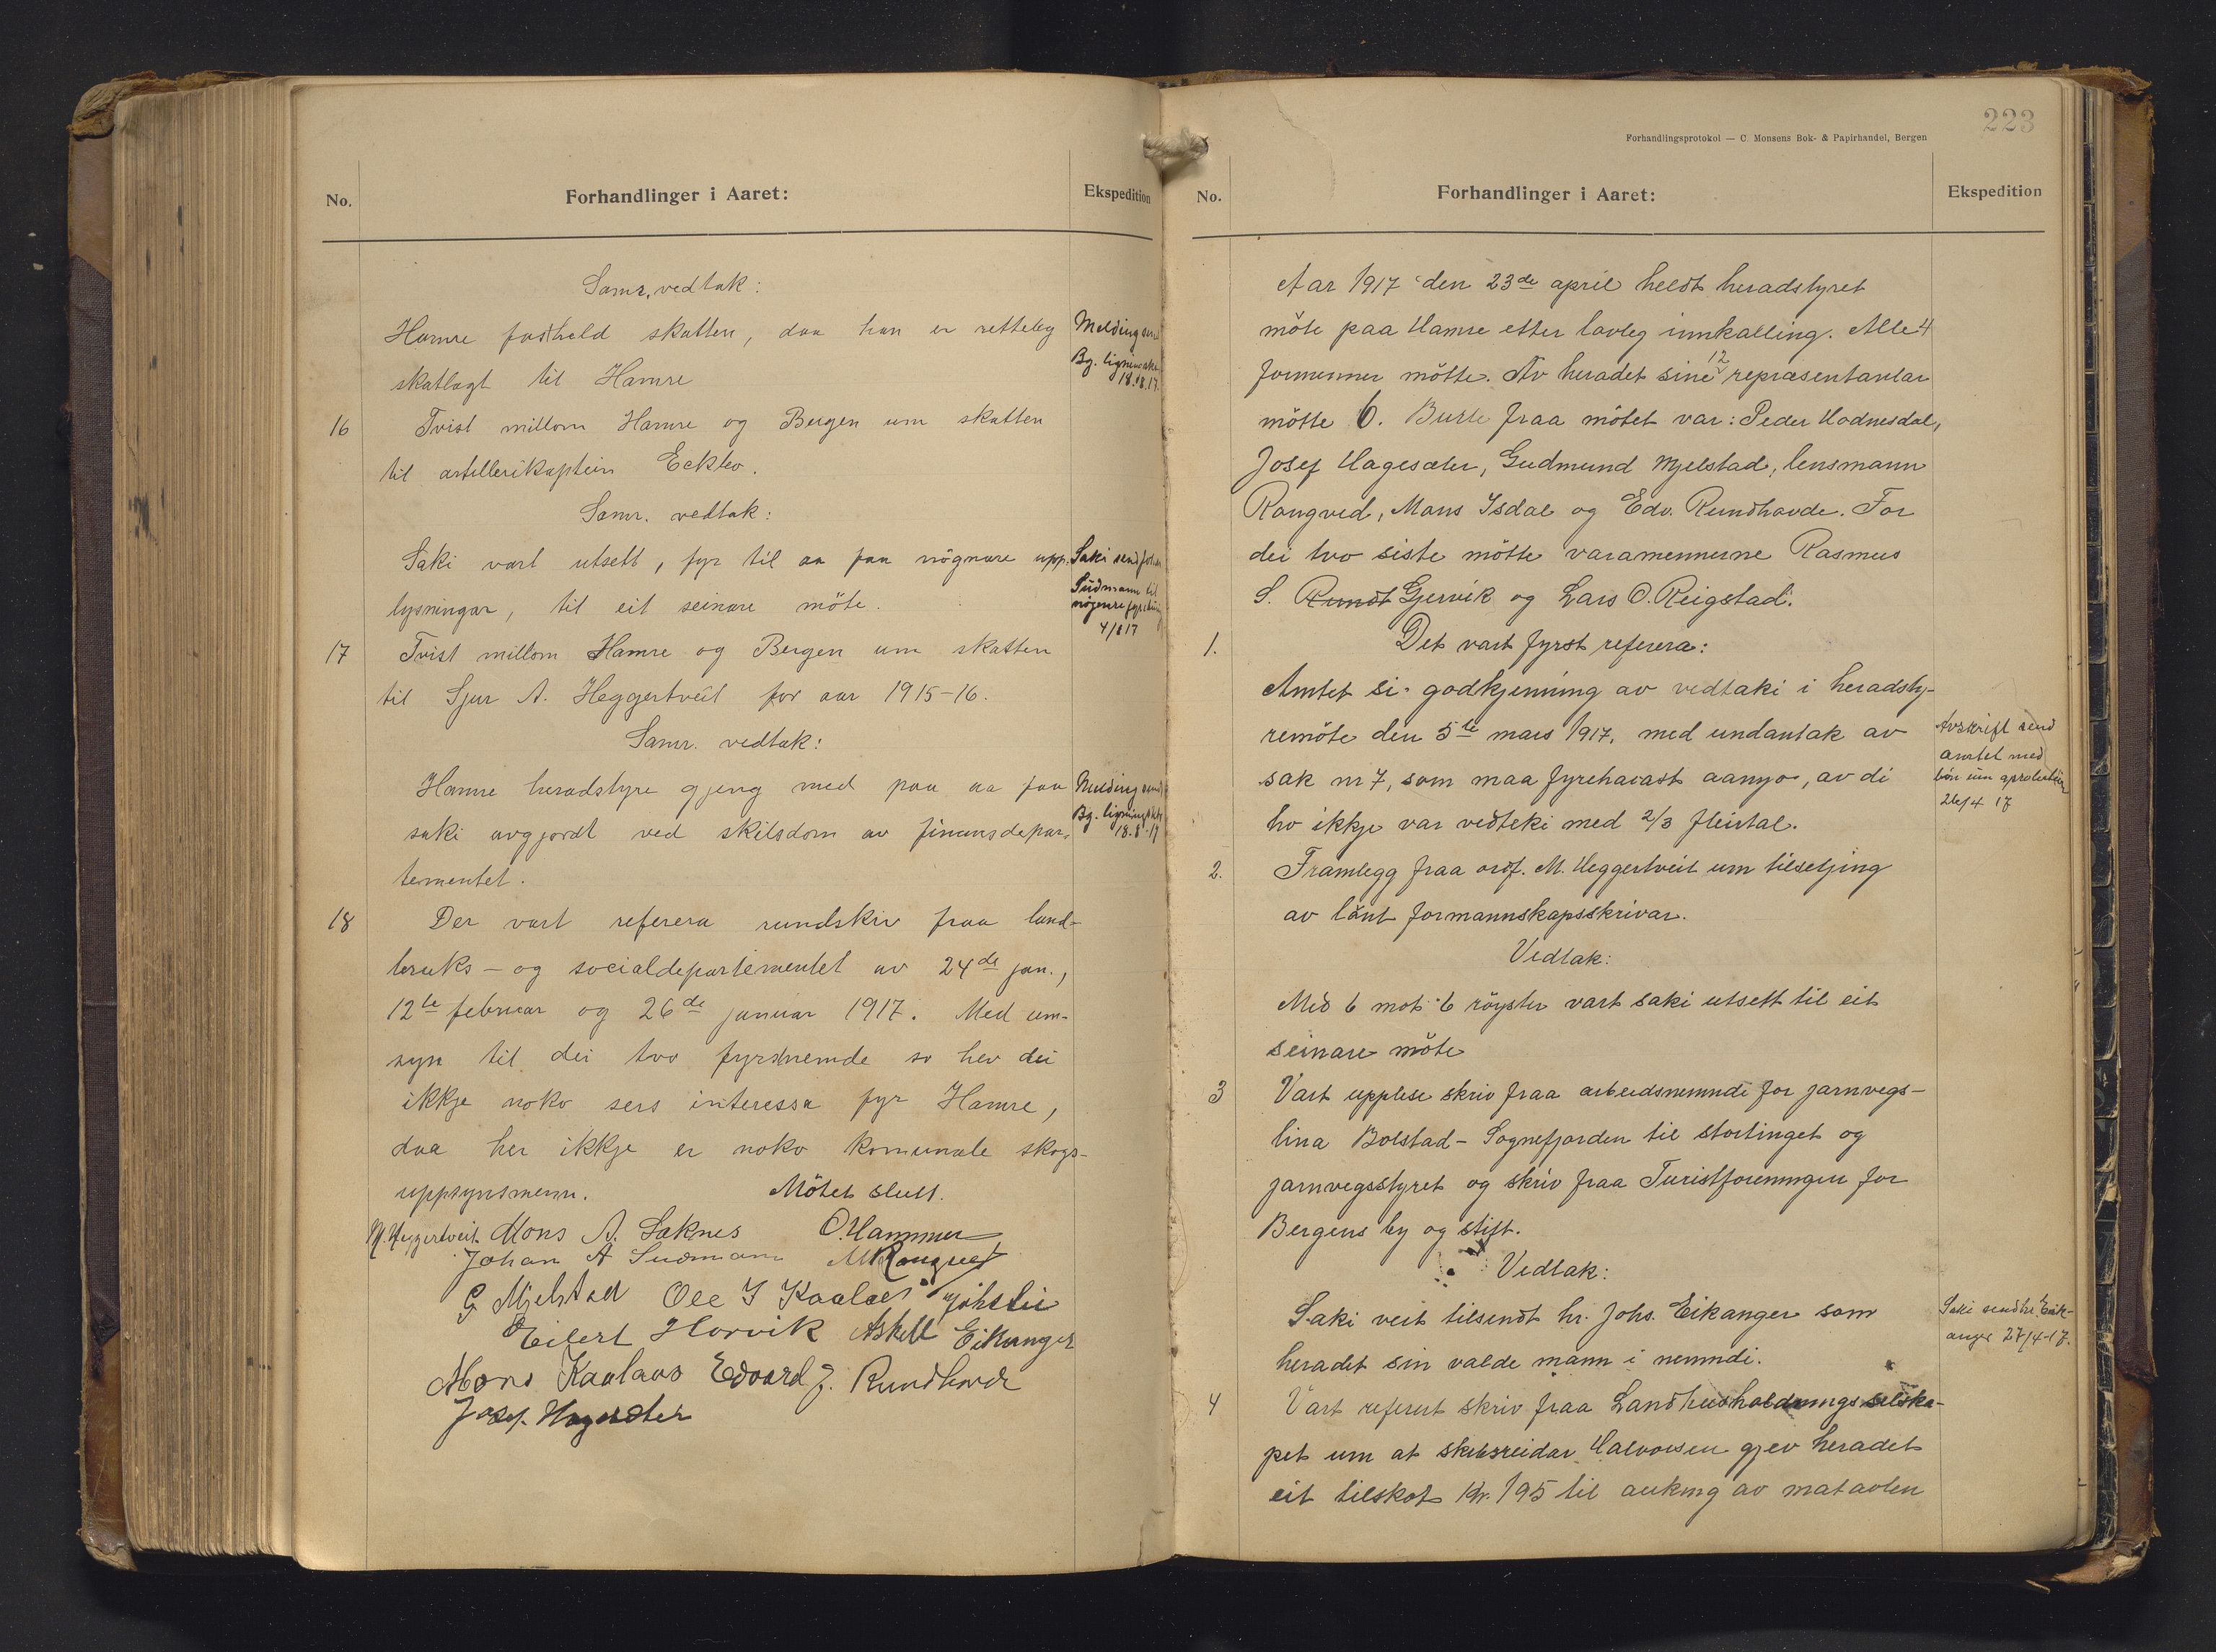 No.
Forhandlinger i Aaret:
Ekspedition
Samr. vedtak:
Hamre fastheld skatten, daa han er retteleg
Melding send
skatlagt til Hamre
18.8.17.
16
Tvist millom Hamre og Bergen um skatten
til artillerikaptein Eckho.
Samr. vedtak:
Saki vart utsett, fyr til aa faa nögnare upp-
lysningar, til eit seinare möte.
Saki send
Sudmann til
nögnare
4/8 17
17
Tvist millom Hamre og Bergen um skatten
til Sjur A. Heggertveit for aar 1915-16.
Samr. vedtak:
Hamre heradstyre gjeng med paa aa faa
saki avgjordt ved skilsdom av finansdepar-
tementet.
Melding send
18.8.17
18
Der vart referera rundskriv fraa land-
bruks- og socialdepartementet av 24de jan.,
12te februar og 26de januar 1917. Med um-
syn til dei tvo fyrstnemde so hev dei
ikkje noko sers interessa fyr Hamre,
daa her ikkje er noko komunale skogs-
uppsynsmenn. Mötet slutt.
M. Heggertveit Mons A. Saknes O. Hammer
Johan A Sudmann M Rongved
G Mjelstad Ole I Kaalaas Johs Lie
Eilert Horvik Askell Eikanger
Mons Kaalaas Edvard J. Rundhovde
Josef Hagesæter
223
Forhandlingsprotokol — C. Monsens Bok- & Papirhandel, Bergen
No.
Forhandlinger i Aaret:
Ekspedition
Aar 1917 den 23de april heldt heradstyret
möte paa Hamre etter lovleg innkalling. Alle 4
formenner mötte. Av heradet sine 12 repræsentantar
mötte 6. Burte fraa mötet var: Peder Hodnesdal,
Josef Hagesæter, Gudmund Mjelstad, lensmann
Rongved, Mons Isdal og Edv. Rundhovde. For
dei tvo siste mötte varamennerne Rasmus
S. Rundt Gjervik og Lars O. Reigstad.
1.
Det vart fyrst referera:
Amtet si godkjenning av vedtaki i heradsty-
remöte den 5te mars 1917, med undantak av
sak nr 7, som maa fyrehavast aanyo, av di
ho ikkje var vedteki med 2/3 fleirtal.
Avskrift send
amtet med
bön um aprobation
26/4 17
2.
Framlegg fraa ordf. M. Heggertveit um tilsetjing
av lönt formannskapsskrivar.
Vedtak:
Med 6 mot 6 röyster vart saki utsett til eit
seinare möte
3
Vart upplese skriv fraa arbeidsnemndi for jarnvegs-
lina Bolstad - Sognefjorden til stortinget og
jarnvegsstyret og skriv fraa Turistforeningen for
Bergens by og stift.
Vedtak:
Saki vert tilsendt hr. Johs. Eikanger som
heradet sin valde mann i nemndi.
Saki send hr. Eik-
anger 27/4-17.
4
Vart referert skriv fraa Landhusholdningsselska-
pet um at skibsreidar Halvorsen gjev heradet
eit tilskot Kr. 195 til auking av matavlen